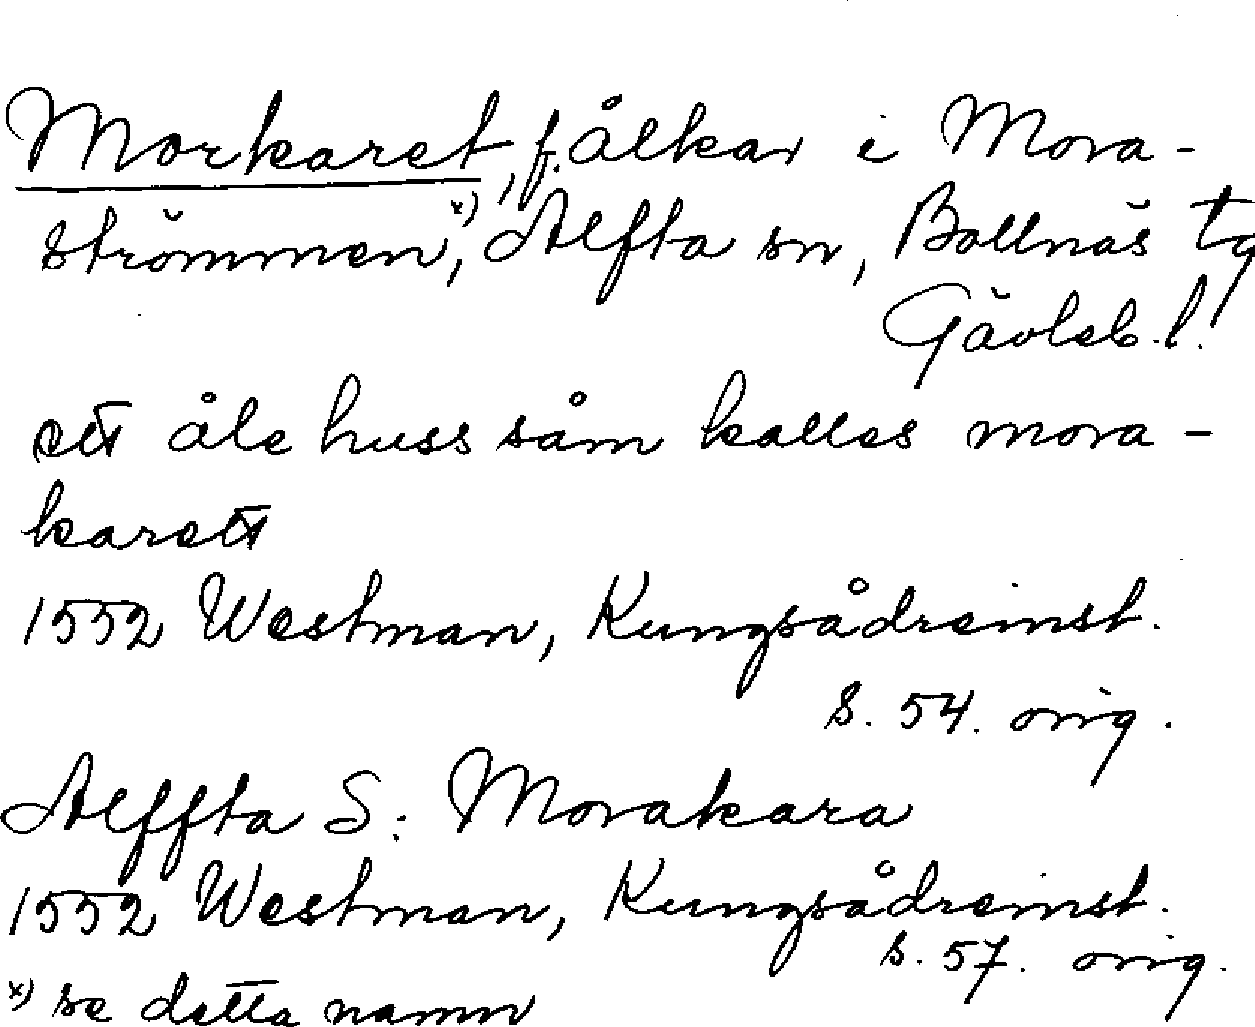 Morkaret, f. ålkar i Mora-
strömmen,x) Alfta sn, Bollnäs tg
Gävleb. l.
ett åle huss såm kalles mora-
karett
1552 Westman, Kungsådreinst.
s. 54. orig.
Alffta S: Morakara
1552 Westman, Kungsådreinst.
s. 57. orig.
x) se detta namn